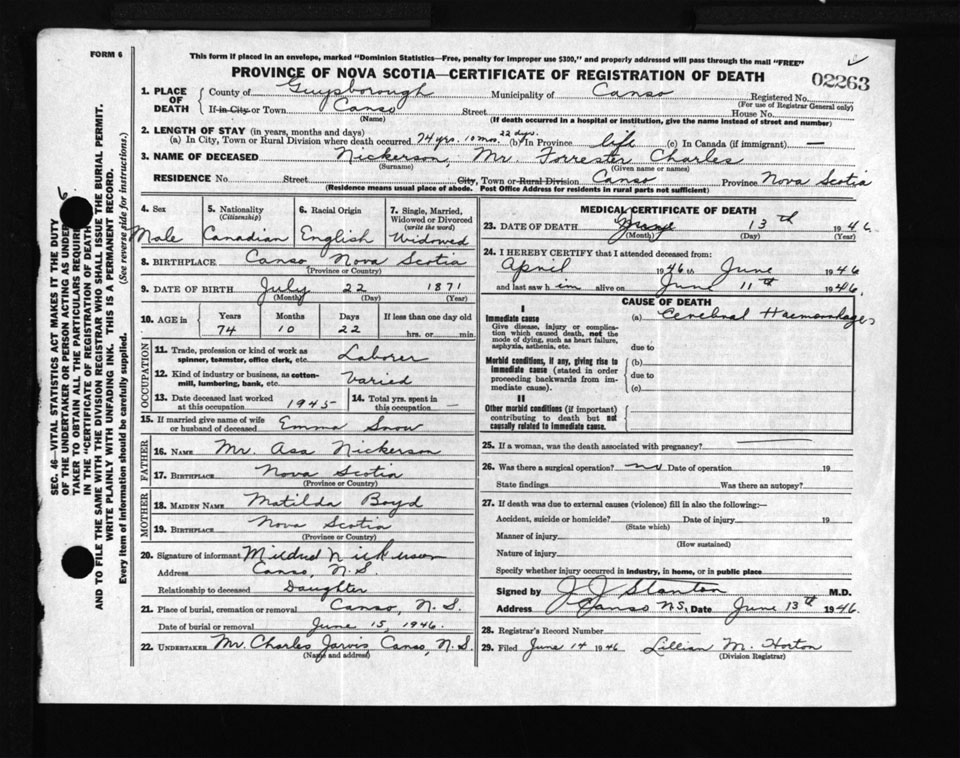 FORM 6
This form if placed in an envelope, marked "Dominion Statistics—Free, penalty for improper use $300," and properly addressed will pass through the mail "FREE"
PROVINCE OF NOVA SCOTIA—CERTIFICATE OF REGISTRATION OF DEATH
02263
1. PLACE OF DEATH
County of Guysborough Municipality of Canso Registered No.
(For use of Registrar General only)
If in City or Town Canso Street House No.
(Name) (If death occurred in a hospital or institution, give the name instead of street and number)
2. LENGTH OF STAY (in years, months and days)
(a) In City, Town or Rural Division where death occurred. 74 yrs. 10 mos. 22 dys. (b) In Province life (c) In Canada (if immigrant) —
3. NAME OF DECEASED Nickerson, Mr. Forrester Charles
(Surname) (Given name or names)
RESIDENCE No. Street City, Town or Rural Division Canso Province Nova Scotia
(Residence means usual place of abode. Post Office Address for residents in rural parts not sufficient)
4. Sex
Male
5. Nationality
(Citizenship)
Canadian
6. Racial Origin
English
7. Single, Married, Widowed or Divorced
(write the word)
Widowed
8. BIRTHPLACE Canso Nova Scotia
(Province or Country)
9. DATE OF BIRTH July 22 1871
(Month) (Day) (Year)
10. AGE in Years Months Days If less than one day old
74 10 22 hrs. or min.
OCCUPATION
11. Trade, profession or kind of work as spinner, teamster, office clerk, etc. Laborer
12. Kind of industry or business, as cotton-mill, lumbering, bank, etc. Varied
13. Date deceased last worked at this occupation 1945
14. Total yrs. spent in this occupation —
15. If married give name of wife or husband of deceased Emma Snow
FATHER
16. NAME Mr. Asa Nickerson
17. BIRTHPLACE Nova Scotia
(Province or Country)
MOTHER
18. MAIDEN NAME Matilda Boyd
19. BIRTHPLACE Nova Scotia
(Province or Country)
20. Signature of informant Mildred Nickerson
Address Canso, N.S
Relationship to deceased Daughter
21. Place of burial, cremation or removal Canso, N.S.
Date of burial or removal June 15, 1946.
22. UNDERTAKER Mr. Charles Jarvis Canso, N.S.
(Name and address)
MEDICAL CERTIFICATE OF DEATH
23. DATE OF DEATH 13th 1946.
(Month) (Day) (Year)
24. I HEREBY CERTIFY that I attended deceased from:
April 1946 to June 1946
and last saw him alive on June 11th 1946.
CAUSE OF DEATH
I
Immediate cause
Give disease, injury or complication which caused death, not the mode of dying, such as heart failure, asphyxia, asthenia, etc.
(a) Cerebral Haemorrhage
due to
Morbid conditions, if any, giving rise to immediate cause (stated in order proceeding backwards from immediate cause).
(b)
due to
(c)
II
Other morbid conditions (if important) contributing to death but not causally related to immediate cause.
25. If a woman, was the death associated with pregnancy?
26. Was there a surgical operation? no Date of operation 19
State findings Was there an autopsy?
27. If death was due to external causes (violence) fill in also the following:—
Accident, suicide or homicide? Date of injury 19
(State which)
Manner of injury
(How sustained)
Nature of injury
Specify whether injury occurred in industry, in home, or in public place
Signed by J J Stanton M.D.
Address Canso N.S. Date June 13th 1946.
28. Registrar's Record Number
29. Filed June 14 1946 Lillian M. Horton
(Division Registrar)
SEC. 46—VITAL STATISTICS ACT MAKES IT THE DUTY
OF THE UNDERTAKER OR PERSON ACTING AS UNDER-
TAKER TO OBTAIN ALL THE PARTICULARS REQUIRED
IN THE "CERTIFICATE OF REGISTRATION OF DEATH"
AND TO FILE THE SAME WITH THE DIVISION REGISTRAR WHO SHALL ISSUE THE BURIAL PERMIT.
WRITE PLAINLY WITH UNFADING INK. THIS IS A PERMANENT RECORD.
Every item of information should be carefully supplied. (See reverse side for instructions.)